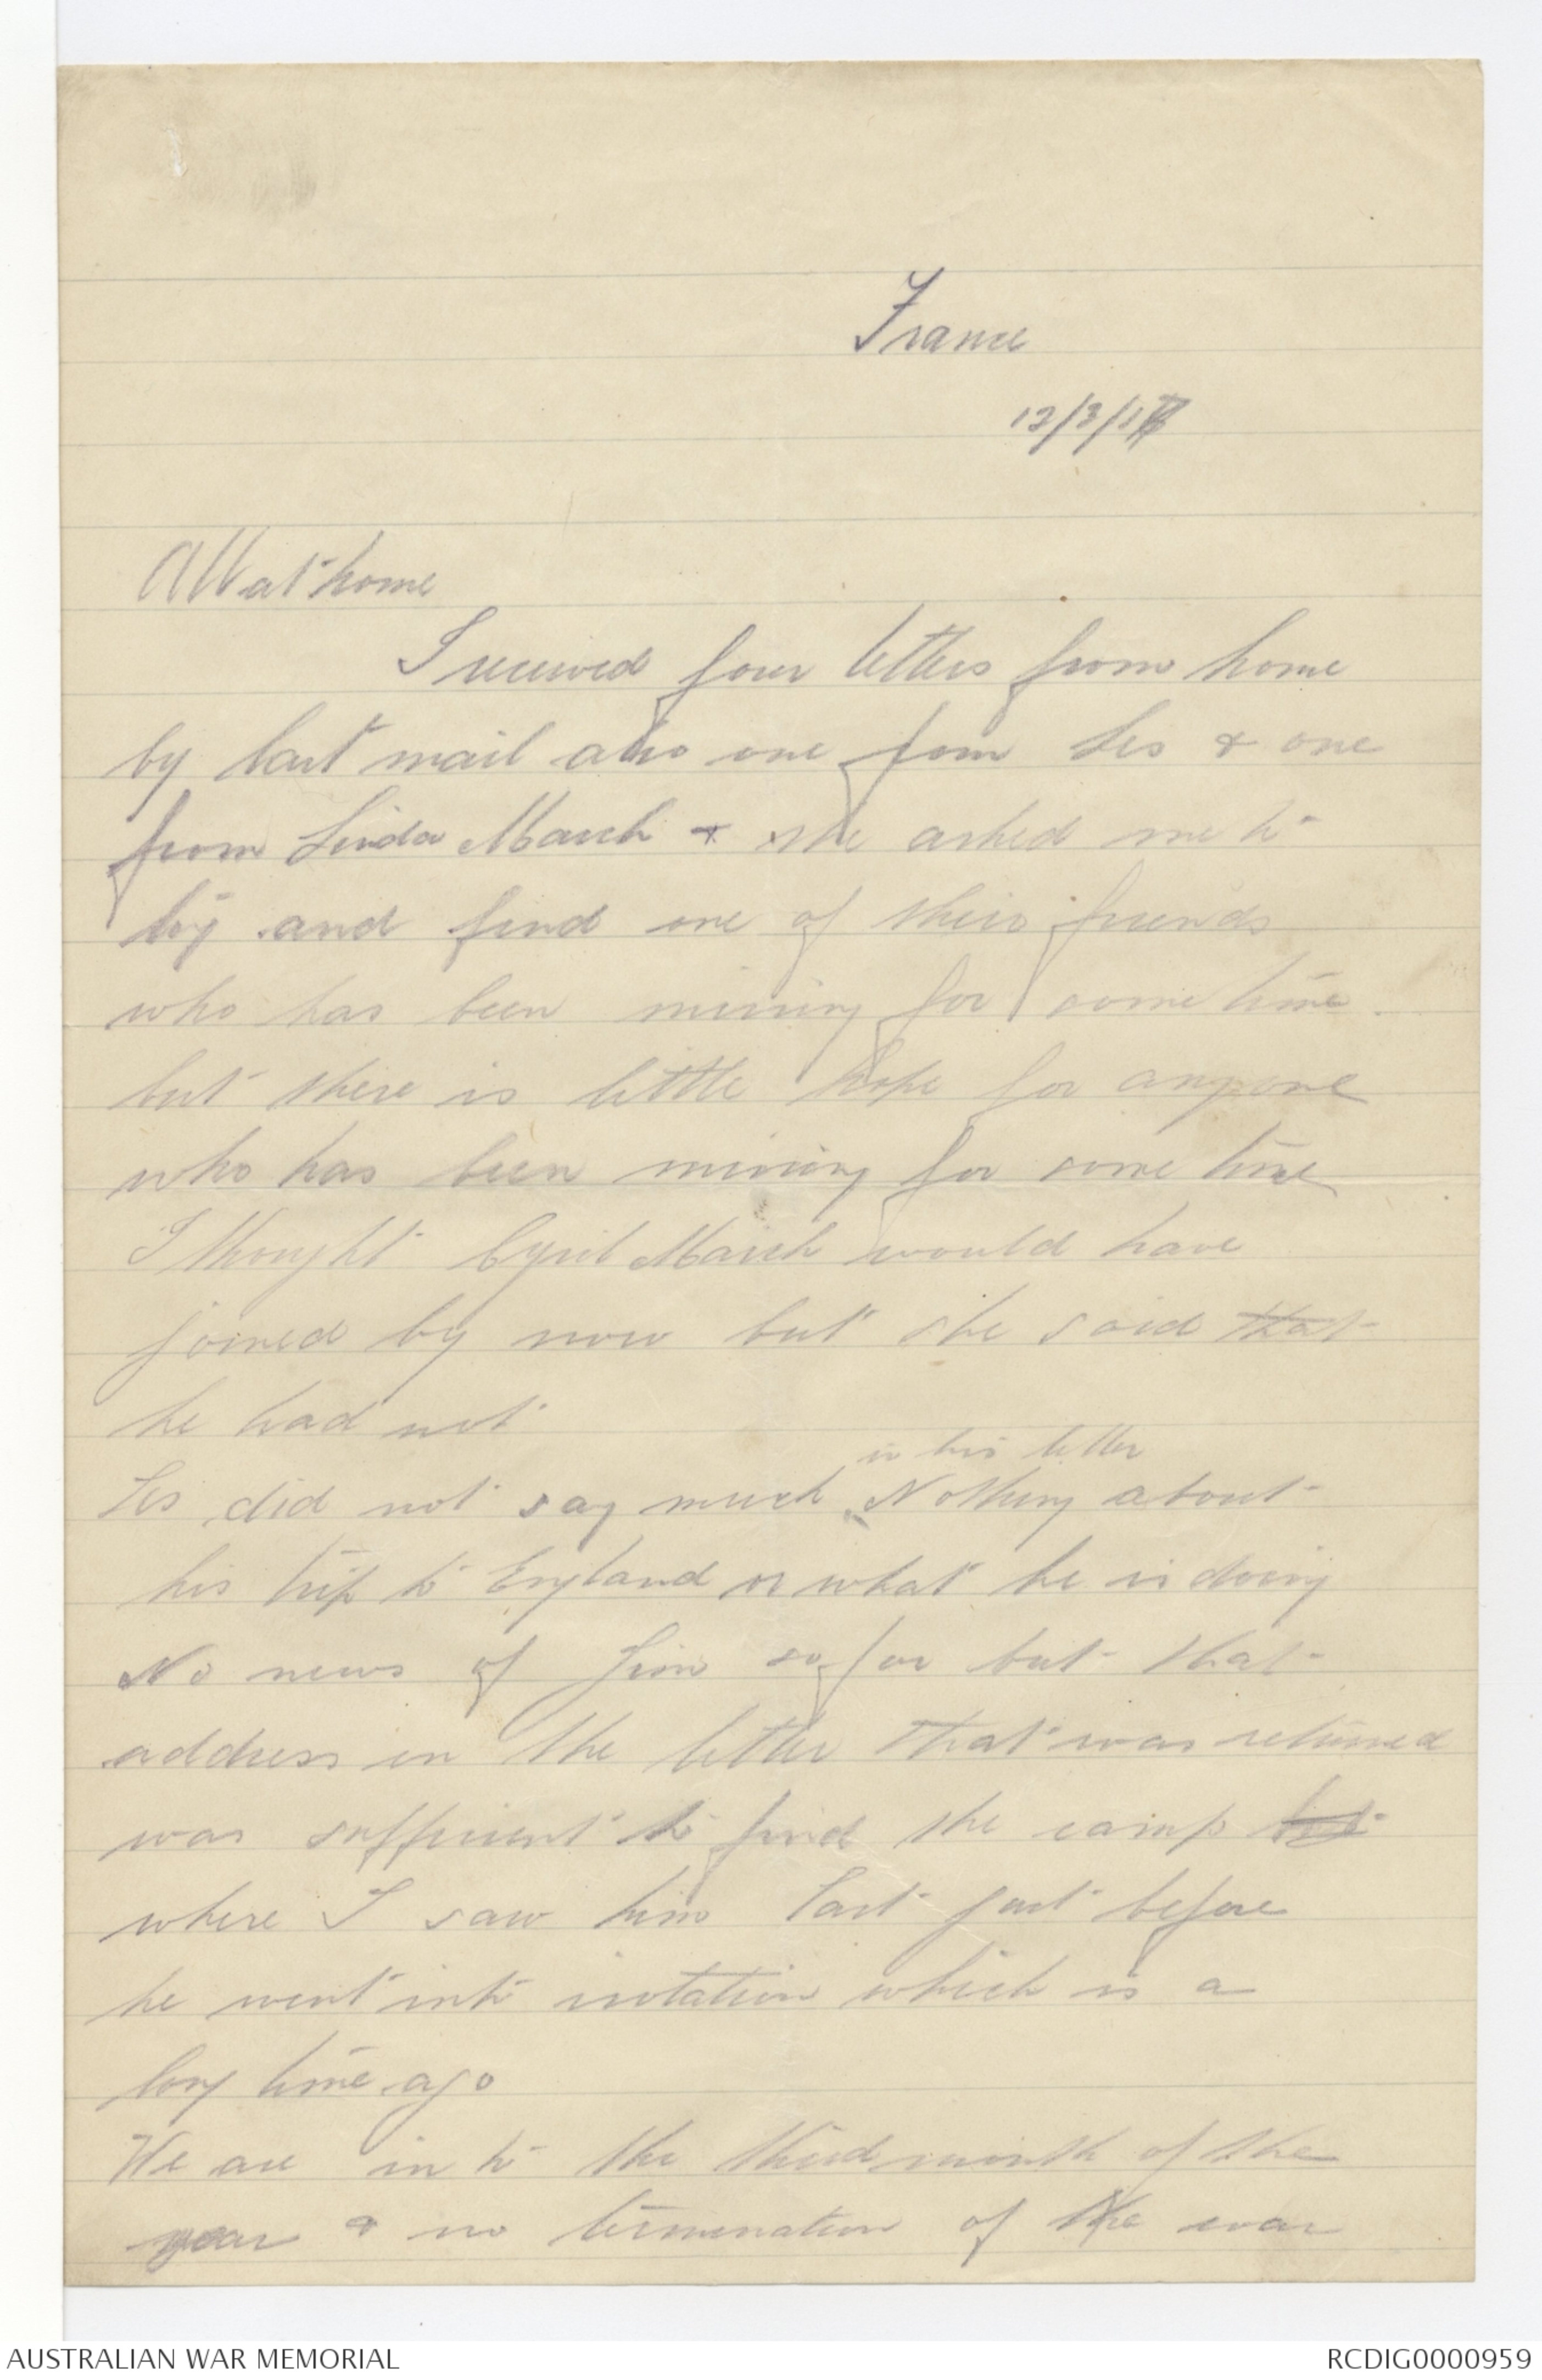 France
12/3/17
All at home
I received four letters from home
by last mail also one fom Les & one
from Linda March & she asked me to
try and find one of their friends
who has been missing for some time
but there is little hope for anyone
who has been missing for some time
I thought Cyril March would have
joined by now but she said that
he had not
in his letter
Les did not say much Nothing about
his trip to England or what he is doing
No news of Jim so far but that
address in the letter that was returned
was suffucient to find the camp but
where I saw him last just before
he went into isolation which is a
long time ago
We are in to the third month of the
year & no termination of the war
AUSTRALIAN WAR MEMORIAL
RCDIG0000959